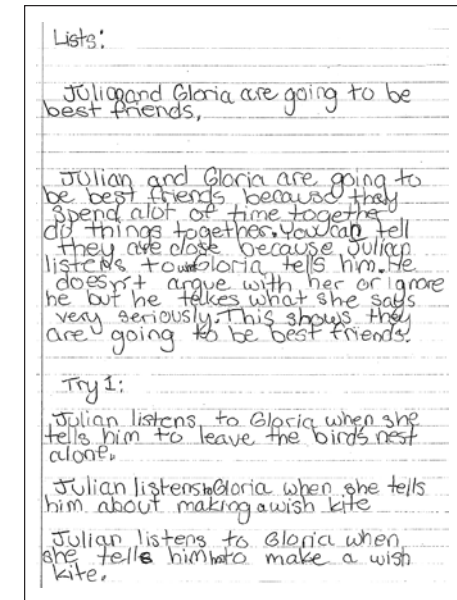 Lists:
Julian and Gloria are going to be
best friends.
Julian and Gloria are going to
be best friends because they
spend alot of time together
do things together. You can tell
they are close because Julian
listens to what Gloria tells him. He
doesn't argue with her or ignore
he but he takes what she says
very seriously. This shows they
are going to be best friends.
Try 1:
Julian listens to Gloria when she
tells him to leave the bird's nest
alone.
Julian listens to Gloria when she tells
him about making a wish kite
Julian listens to Gloria when
she tells him how to make a wish
kite.